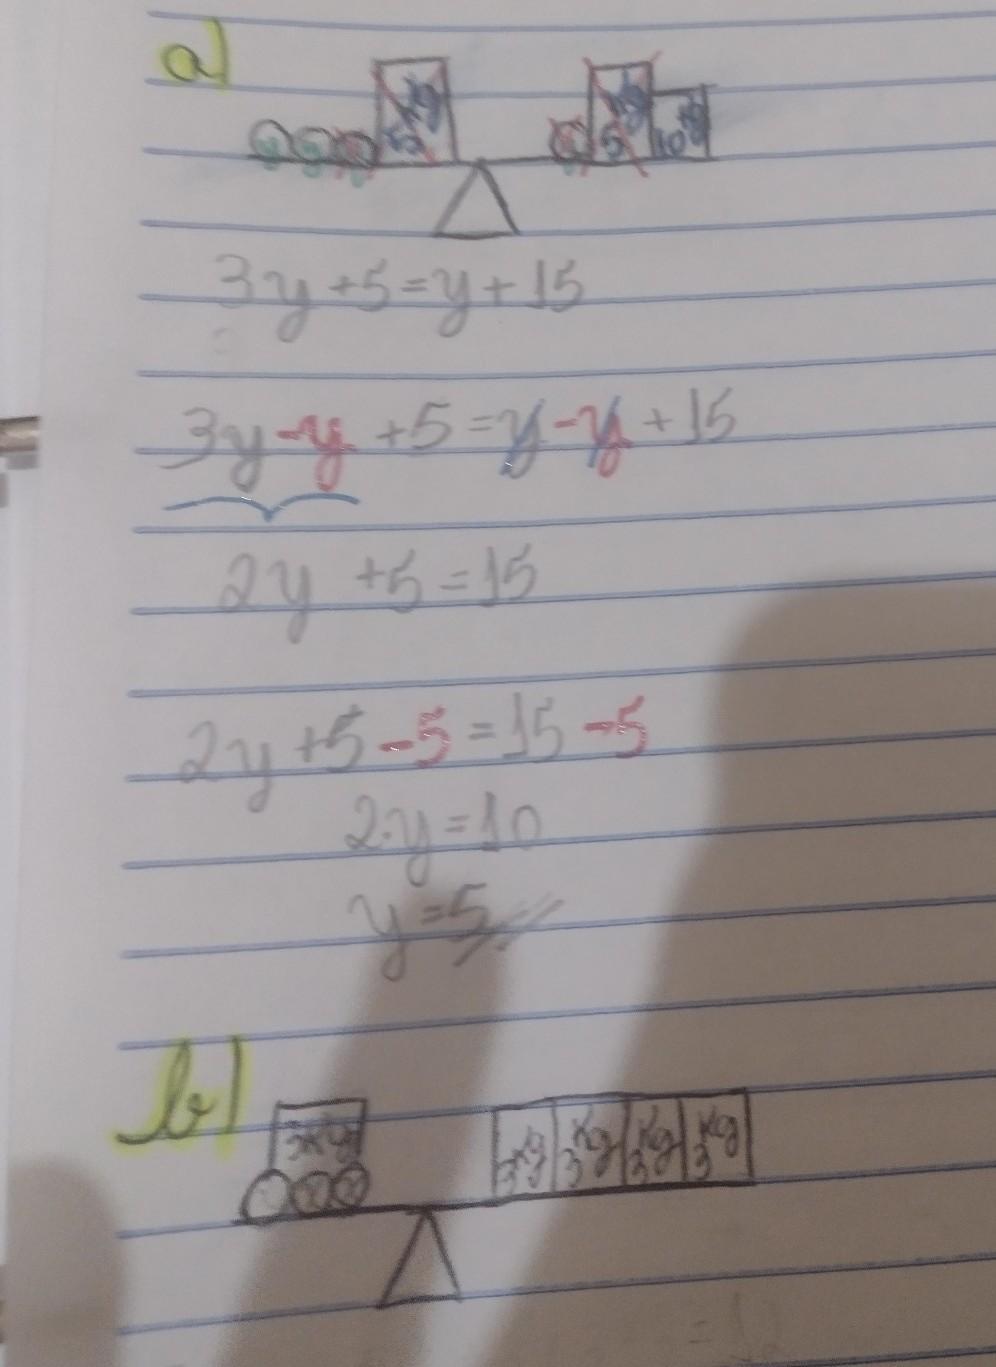 a)
5 kg 5 kg 10 kg
3y+5=y+15
3y-y+5=y-y+15
2y+5=15
2y+5-5=15-5
2.y=10
y=5
b)
3kg 3kg 3kg 3kg 3kg